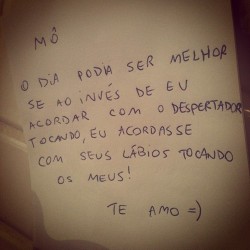 MÔ
O DIA PODIA SER MELHOR
SE AO INVÉS DE EU
ACORDAR COM O DESPERTADOR
TOCANDO, EU ACORDASSE
COM SEUS LÁBIOS TOCANDO
OS MEUS!
TE AMO =)